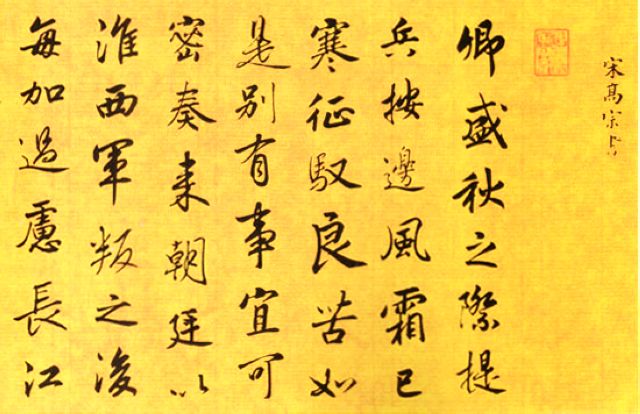 宋高宗书
卿盛秋之際提
兵按邊風霜已
寒征馭良苦如
是別有事宜可
密奏来朝廷以
淮西軍叛之後
每加過慮長江